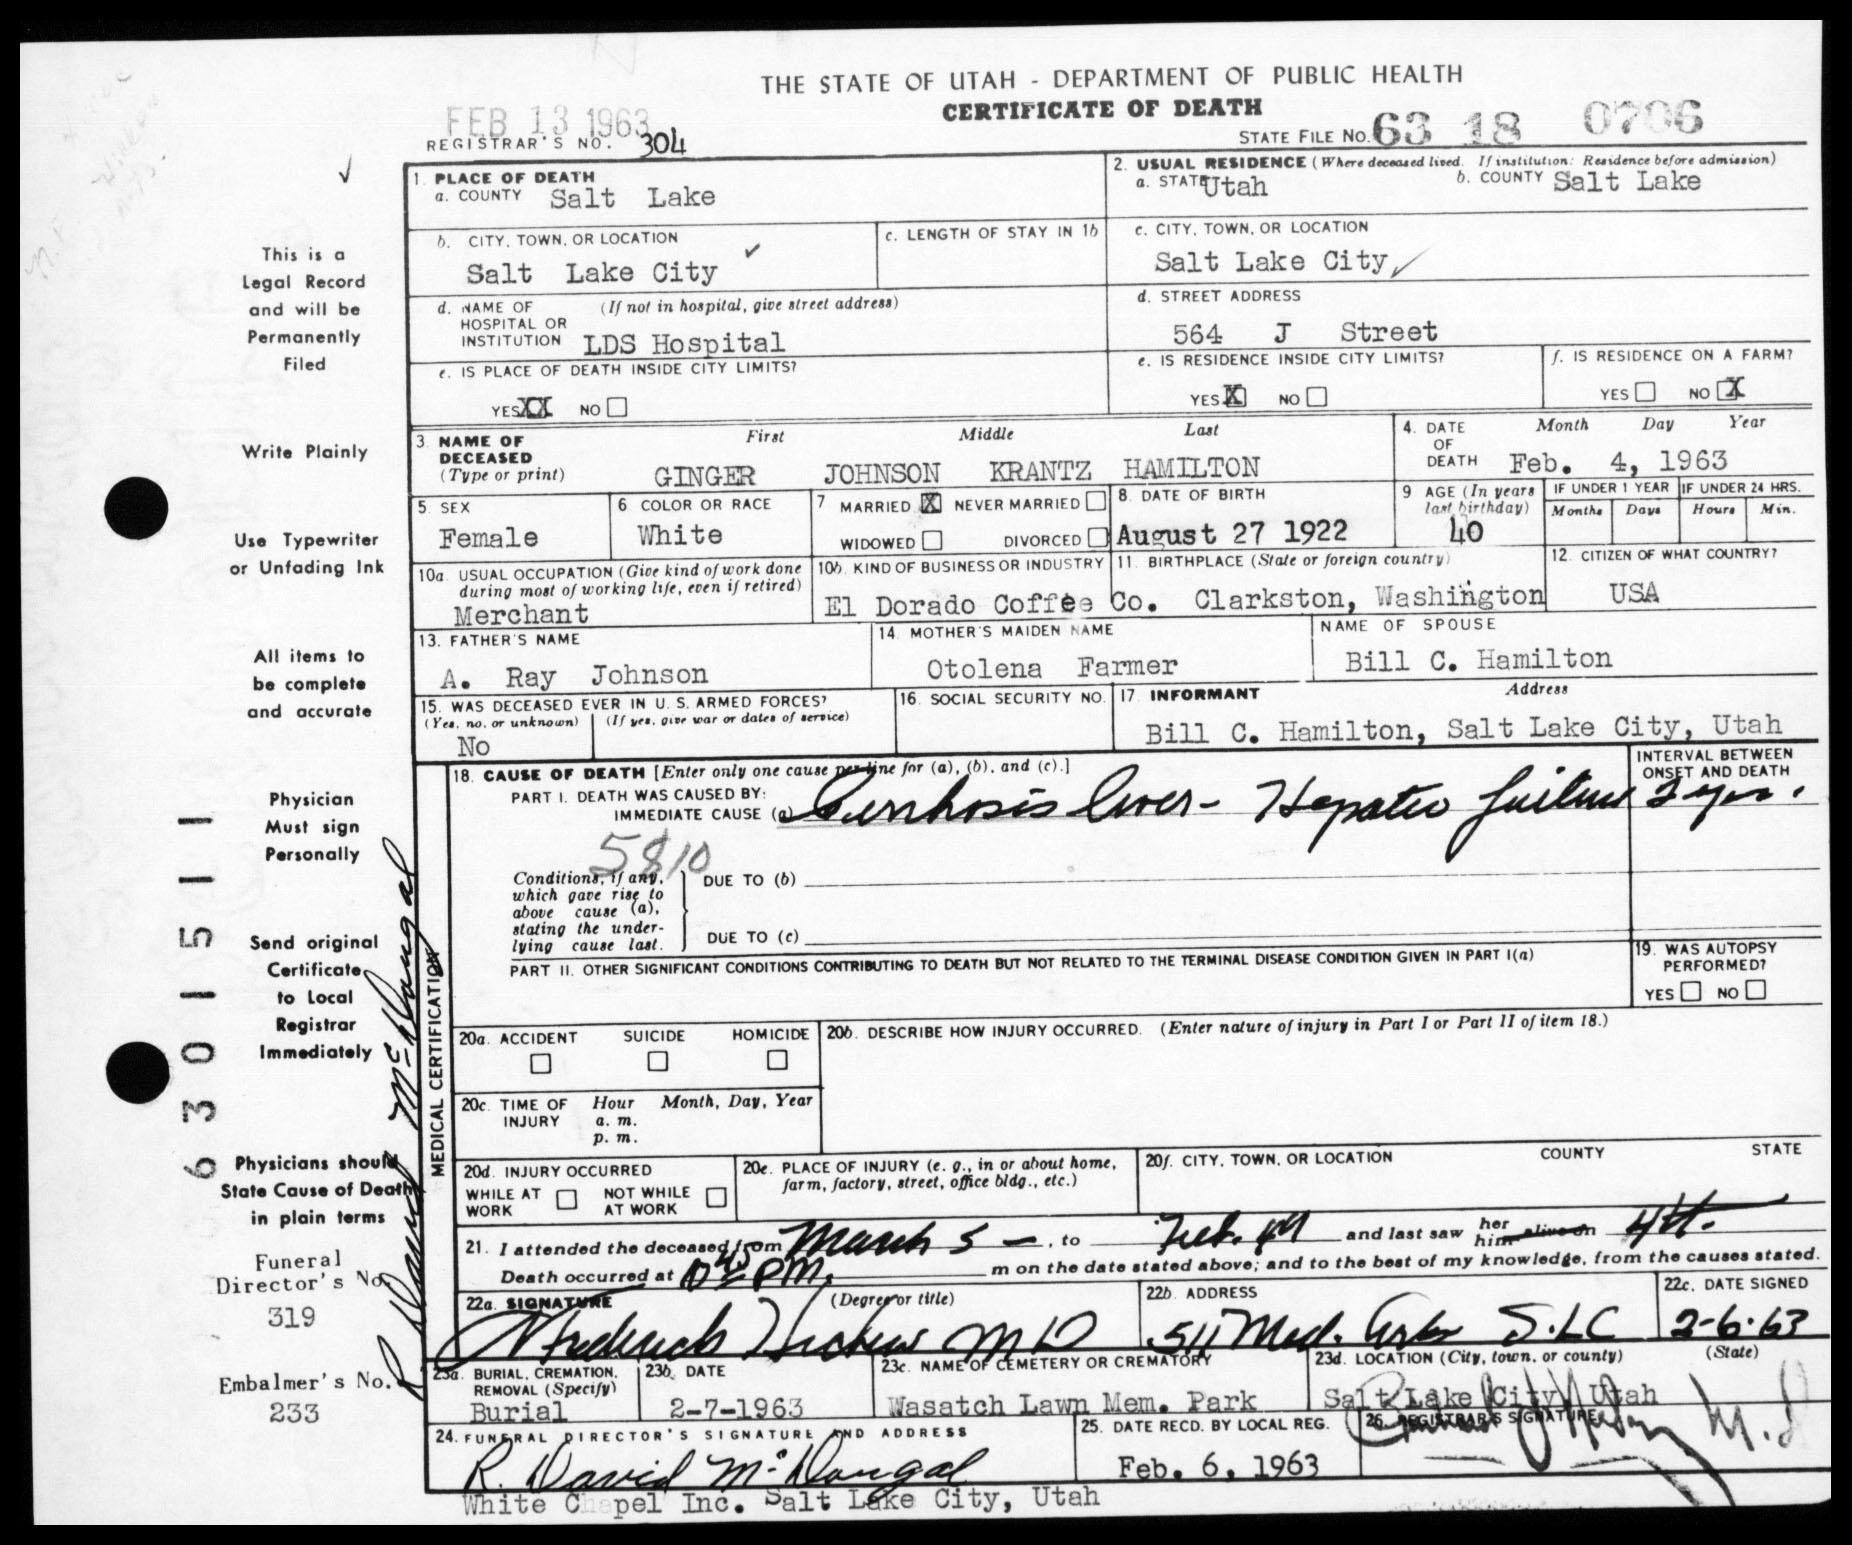 THE STATE OF UTAH - DEPARTMENT OF PUBLIC HEALTH
CERTIFICATE OF DEATH
FEB 13 1963
REGISTRAR'S NO. 304
STATE FILE NO. 63 18 0706
1. PLACE OF DEATH
a. COUNTY Salt Lake
2. USUAL RESIDENCE (Where deceased lived. If institution: Residence before admission)
a. STATE Utah b. COUNTY Salt Lake
b. CITY, TOWN, OR LOCATION
Salt Lake City
c. LENGTH OF STAY IN 1b
c. CITY, TOWN, OR LOCATION
Salt Lake City
d. NAME OF HOSPITAL OR INSTITUTION (If not in hospital, give street address)
LDS Hospital
d. STREET ADDRESS
564 J Street
e. IS PLACE OF DEATH INSIDE CITY LIMITS?
YES XX NO
e. IS RESIDENCE INSIDE CITY LIMITS?
YES X NO
f. IS RESIDENCE ON A FARM?
YES NO X
3. NAME OF DECEASED (Type or print)
First Middle Last
GINGER JOHNSON KRANTZ HAMILTON
4. DATE OF DEATH Month Day Year
Feb. 4, 1963
5. SEX
Female
6 COLOR OR RACE
White
7 MARRIED X NEVER MARRIED
WIDOWED DIVORCED
8. DATE OF BIRTH
August 27 1922
9 AGE (In years last birthday)
40
IF UNDER 1 YEAR
Months Days
IF UNDER 24 HRS.
Hours Min.
10a. USUAL OCCUPATION (Give kind of work done during most of working life, even if retired)
Merchant
10b. KIND OF BUSINESS OR INDUSTRY
El Dorado Coffee Co.
11. BIRTHPLACE (State or foreign country)
Clarkston, Washington
12. CITIZEN OF WHAT COUNTRY?
USA
13. FATHER'S NAME
A. Ray Johnson
14. MOTHER'S MAIDEN NAME
Otolena Farmer
NAME OF SPOUSE
Bill C. Hamilton
15. WAS DECEASED EVER IN U. S. ARMED FORCES?
(Yes, no, or unknown) (If yes, give war or dates of service)
No
16. SOCIAL SECURITY NO.
17. INFORMANT Address
Bill C. Hamilton, Salt Lake City, Utah
MEDICAL CERTIFICATION
18. CAUSE OF DEATH [Enter only one cause per line for (a), (b), and (c).]
PART I. DEATH WAS CAUSED BY:
IMMEDIATE CAUSE (a) Cirrhosis liver - Hepatic failure
INTERVAL BETWEEN ONSET AND DEATH
2 yrs.
5810
Conditions, if any, which gave rise to above cause (a), stating the underlying cause last.
DUE TO (b)
DUE TO (c)
PART II. OTHER SIGNIFICANT CONDITIONS CONTRIBUTING TO DEATH BUT NOT RELATED TO THE TERMINAL DISEASE CONDITION GIVEN IN PART I(a)
19. WAS AUTOPSY PERFORMED?
YES NO
20a. ACCIDENT SUICIDE HOMICIDE
20b. DESCRIBE HOW INJURY OCCURRED. (Enter nature of injury in Part I or Part II of item 18.)
20c. TIME OF INJURY Hour Month, Day, Year
a. m.
p. m.
20d. INJURY OCCURRED
WHILE AT WORK NOT WHILE AT WORK
20e. PLACE OF INJURY (e. g., in or about home, farm, factory, street, office bldg., etc.)
20f. CITY, TOWN, OR LOCATION COUNTY STATE
21. I attended the deceased from March 5 -, to Feb. 4 and last saw her him alive on 4th.
Death occurred at PM. m on the date stated above; and to the best of my knowledge, from the causes stated.
22a. SIGNATURE (Degree or title)
Frederick MD
22b. ADDRESS
511 Med. Arts S.L.C
22c. DATE SIGNED
2-6-63
23a. BURIAL, CREMATION, REMOVAL (Specify)
Burial
23b. DATE
2-7-1963
23c. NAME OF CEMETERY OR CREMATORY
Wasatch Lawn Mem. Park
23d. LOCATION (City, town, or county) (State)
Salt Lake City, Utah
24. FUNERAL DIRECTOR'S SIGNATURE AND ADDRESS
R. David McDougal
White Chapel Inc. Salt Lake City, Utah
25. DATE RECD. BY LOCAL REG.
Feb. 6, 1963
26. REGISTRAR'S SIGNATURE
M.D
This is a
Legal Record
and will be
Permanently
Filed
Write Plainly
Use Typewriter
or Unfading Ink
All items to
be complete
and accurate
Physician
Must sign
Personally
Send original
Certificate
to Local
Registrar
Immediately
Physicians should
State Cause of Death
in plain terms
Funeral
Director's No.
319
Embalmer's No.
233
R David McDougal
6301511